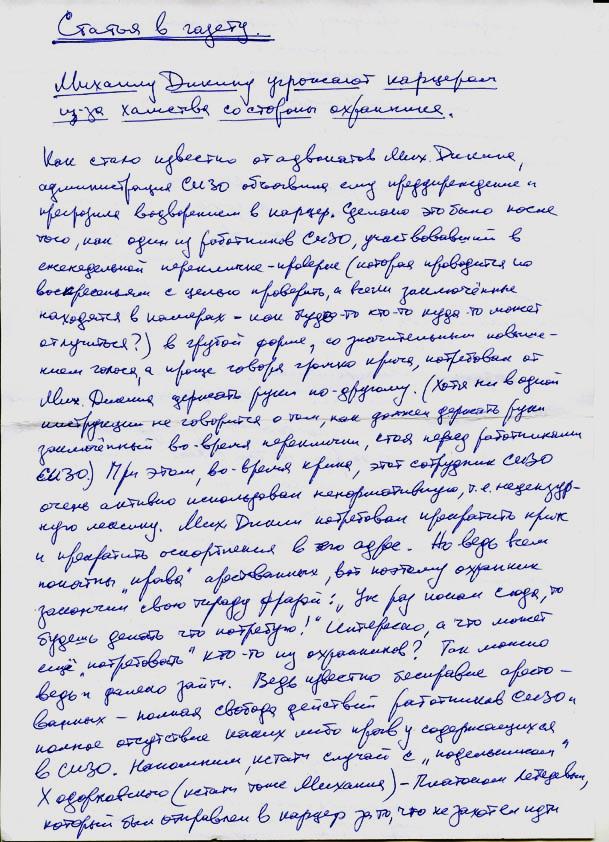 Статья в газету.
Михаилу Дикину угрожают карцером
из-за хамства со стороны охранника.
Как стало известно от адвокатов Мих. Дикина,
администрация СИЗО объявила ему предупреждение и
пригрозила водворением в карцер. Сделано это было после
того, как один из работников СИЗО, участвовавший в
еженедельной перекличке-проверке (которая проводится по
воскресеньям с целью проверить, а всели заключённые
находятся в камерах – как будто кто-то куда-то может
отлучиться?) в грубой форме, со значительным повыше-
нием голоса, а проще говоря громко крича, потребовал от
Мих. Дикина держать руки по-другому. (Хотя ни в одной
инструкции не говорится о том, как должен держать руки
заключённый во-время переклички, стоя перед работниками
СИЗО.) При этом, во-время крика, этот сотрудник СИЗО
очень активно использовал ненормативную, т.е. нецензур-
ную лексику. Мих Дикин потребовал прекратить крик
и прекратить оскорбления в его адрес. Но ведь всем
понятны "права" арестованных, вот поэтому охранник
закончил свою тираду фразой: "Уж раз попал сюда, то
будешь делать что потребую!" Интересно, а что может
ещё "потребовать" кто-то из охранников? Так можно
ведь и далеко зайти. Ведь известно бесправие аресто-
ванных – полная свобода действий работников СИЗО и
полное отсутствие каких либо прав у содержащихся
в СИЗО. Напомним, кстати случай с "подельником"
Ходорковского (кстати тоже Михаила) – Платоном Лебедевым,
который был отправлен в карцер за то, что не захотел идти